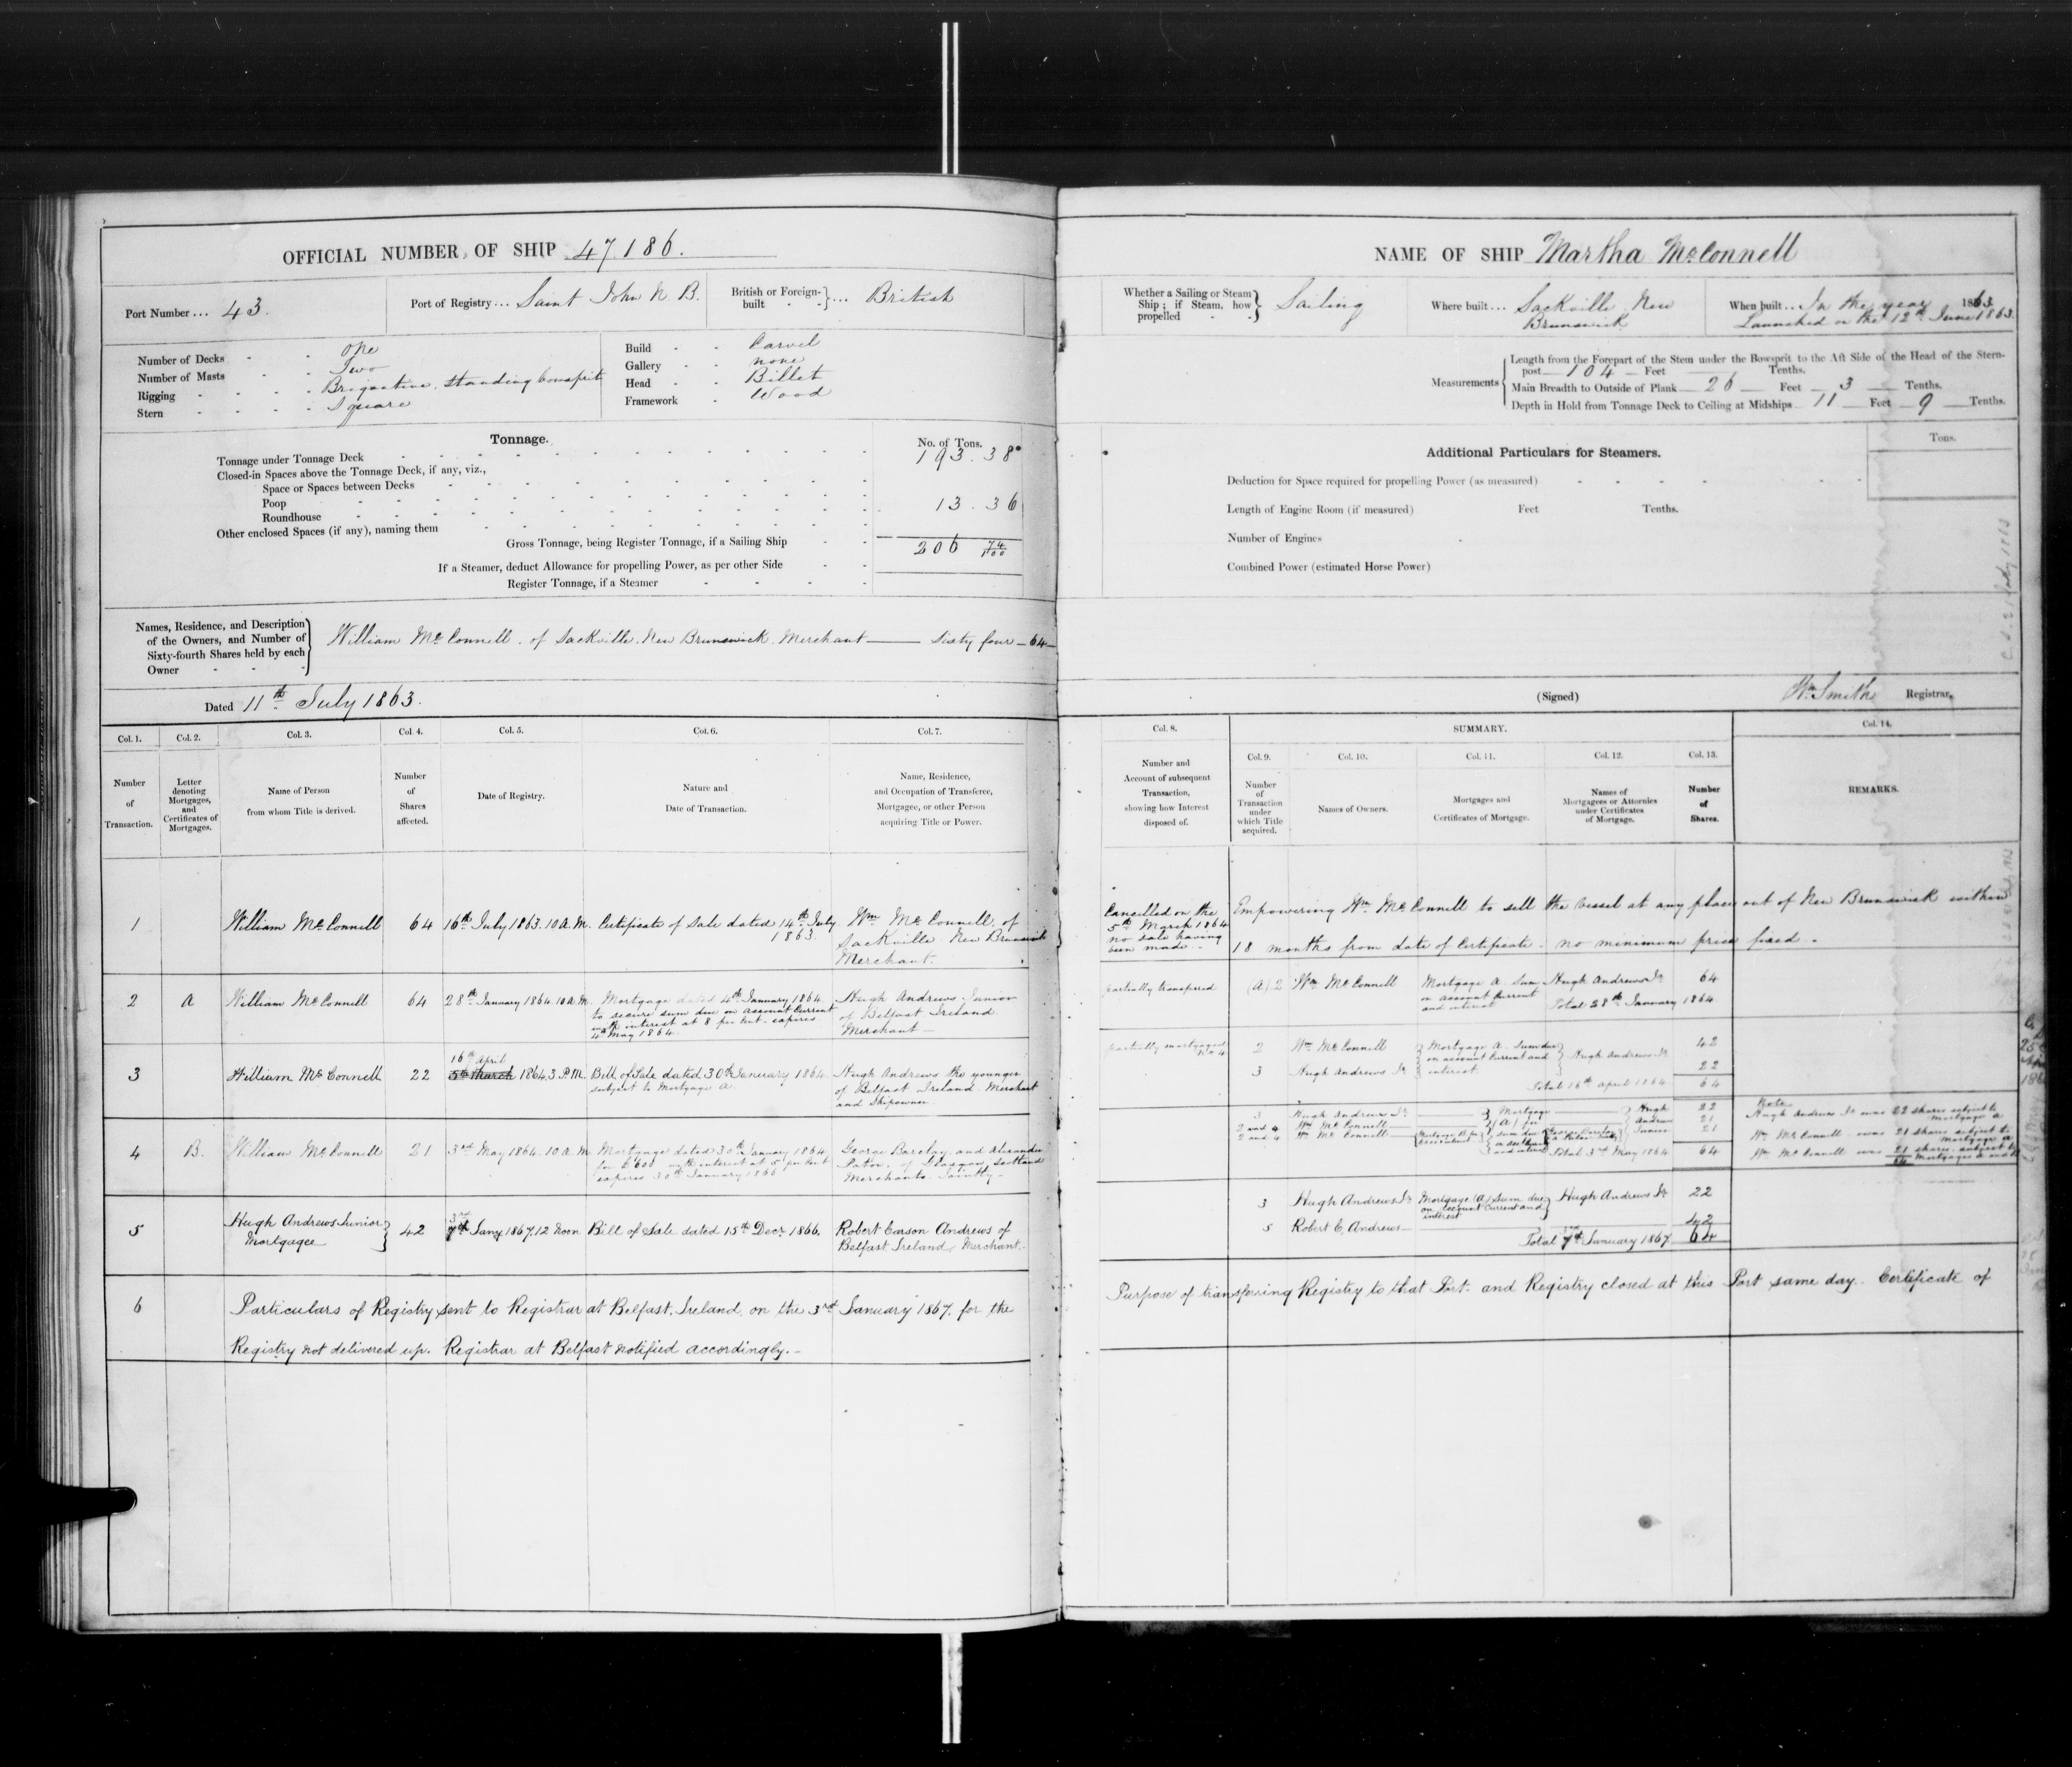 OFFICIAL NUMBER, OF SHIP 47186.
Port Number ... 43.
Port of Registry ... Saint John N. B.
British or Foreign-
built - - } ... British
Number of Decks - - one
Number of Masts - - Two
Rigging - - - - Brigantine. Standing bowsprit
Stern - - - - Square
Build - - Carvel
Gallery - - none
Head - - Billet
Framework - Wood
Tonnage.
No. of Tons.
Tonnage under Tonnage Deck 193.38
Closed-in Spaces above the Tonnage Deck, if any, viz.,
Space or Spaces between Decks
Poop 13.36
Roundhouse
Other enclosed Spaces (if any), naming them
Gross Tonnage, being Register Tonnage, if a Sailing Ship 206 74/100
If a Steamer, deduct Allowance for propelling Power, as per other Side
Register Tonnage, if a Steamer
Names, Residence, and Description
of the Owners, and Number of
Sixty-fourth Shares held by each
Owner
William McConnell. of Sackville. New Brunswick. Merchant — Sixty four — 64 —
Dated 11th July 1863.
Col. 1. Col. 2. Col. 3. Col. 4. Col. 5. Col. 6. Col. 7.
Number
of
Transaction.
Letter
denoting
Mortgages,
and
Certificates of
Mortgages.
Name of Person
from whom Title is derived.
Number
of
Shares
affected.
Date of Registry.
Nature and
Date of Transaction.
Name, Residence,
and Occupation of Transferee,
Mortgagee, or other Person
acquiring Title or Power.
1
William McConnell
64
16th July 1863. 10 A.M.
Certificate of Sale dated 14th July
1863.
Wm McConnell of
Sackville New Brunswick
Merchant.
2
A
William McConnell
64
28th January 1864. 10 A.M.
Mortgage dated 4th January 1864
to secure sum due on account Current
with interest at 8 per Cent. expires
4th May 1864.
Hugh Andrews Junior
of Belfast Ireland
Merchant —
3
William McConnell
22
16th April
5th March 1864. 3 P.M.
Bill of Sale dated 30th January 1864
subject to Mortgage A.
Hugh Andrews the younger
of Belfast Ireland Merchant
and Shipowner.
4
B.
William McConnell
21
3rd May 1864. 10 A.M.
Mortgage dated 30th January 1864
for £600 with interest at 5 per Cent
expires 30th January 1866
George Barclay and Alexander
Paton. of Glasgow Scotland
Merchants. Jointly -
5
Hugh Andrews Junior
Mortgagee
42
3rd
7th Jany 1867. 12 Noon
Bill of Sale dated 15th Decr 1866.
Robert Carson Andrews of
Belfast Ireland, Merchant.
6
Particulars of Registry sent to Registrar at Belfast, Ireland, on the 3rd January 1867. for the
Registry not delivered up. Registrar at Belfast notified accordingly. -
NAME OF SHIP Martha McConnell
Whether a Sailing or Steam
Ship; if Steam, how
propelled - - } Sailing
Where built ... Sackville New
Brunswick
When built ... In the year 1863.
Launched on the 12th June 1863.
Measurements
Length from the Forepart of the Stem under the Bowsprit to the Aft Side of the Head of the Stern-
post — 104 — Feet — Tenths.
Main Breadth to Outside of Plank — 26 — Feet — 3 — Tenths.
Depth in Hold from Tonnage Deck to Ceiling at Midships 11 — Feet — 9 — Tenths.
Additional Particulars for Steamers.
Tons.
Deduction for Space required for propelling Power (as measured)
Length of Engine Room (if measured) Feet Tenths.
Number of Engines
Combined Power (estimated Horse Power)
(Signed) Wm Smith Registrar.
Col. 8.
SUMMARY.
Col. 14.
Col. 9. Col. 10. Col. 11. Col. 12. Col. 13.
Number and
Account of subsequent
Transaction,
showing how Interest
disposed of.
Number
of
Transaction
under
which Title
acquired.
Names of Owners.
Mortgages and
Certificates of Mortgage.
Names of
Mortgagees or Attornies
under Certificates
of Mortgage.
Number
of
Shares.
REMARKS.
Cancelled on the
5th March 1864
no sale having
been made -
Empowering Wm McConnell to sell the vessel at any place out of New Brunswick within
18 months from date of Certificate - no minimum price fixed.
partially transferred
(A) 2
Wm McConnell
Mortgage A. Sum
on account Current
and interest
Hugh Andrews Jr
64
Total 28th January 1864
partially mortgaged
No 4
2 Wm McConnell
3 Hugh Andrews Jr
Mortgage A. Sum due
on account Current and
interest
Hugh Andrews Jr
42
22
Total 16th April 1864 64
3 Hugh Andrews Jr
2 and 4 Wm McConnell
2 and 4 Wm McConnell
Mortgage
(A) for
Sum due
Hugh
Andrews
Junior
22
21
21
Total 3rd May 1864 64
Note
Hugh Andrews Jr owns 22 shares subject to
Mortgage A
Wm McConnell owns 21 shares subject to
Mortgage A
Wm McConnell owns 21 shares subject to
64 Mortgages A and B
3 Hugh Andrews Jr
Mortgage (A) Sum due
on account Current and
interest
Hugh Andrews Jr 22
5 Robert C. Andrews — 42
Total 3rd January 1867 64
Purpose of transferring Registry to that Port - and Registry closed at this Port same day. Certificate of